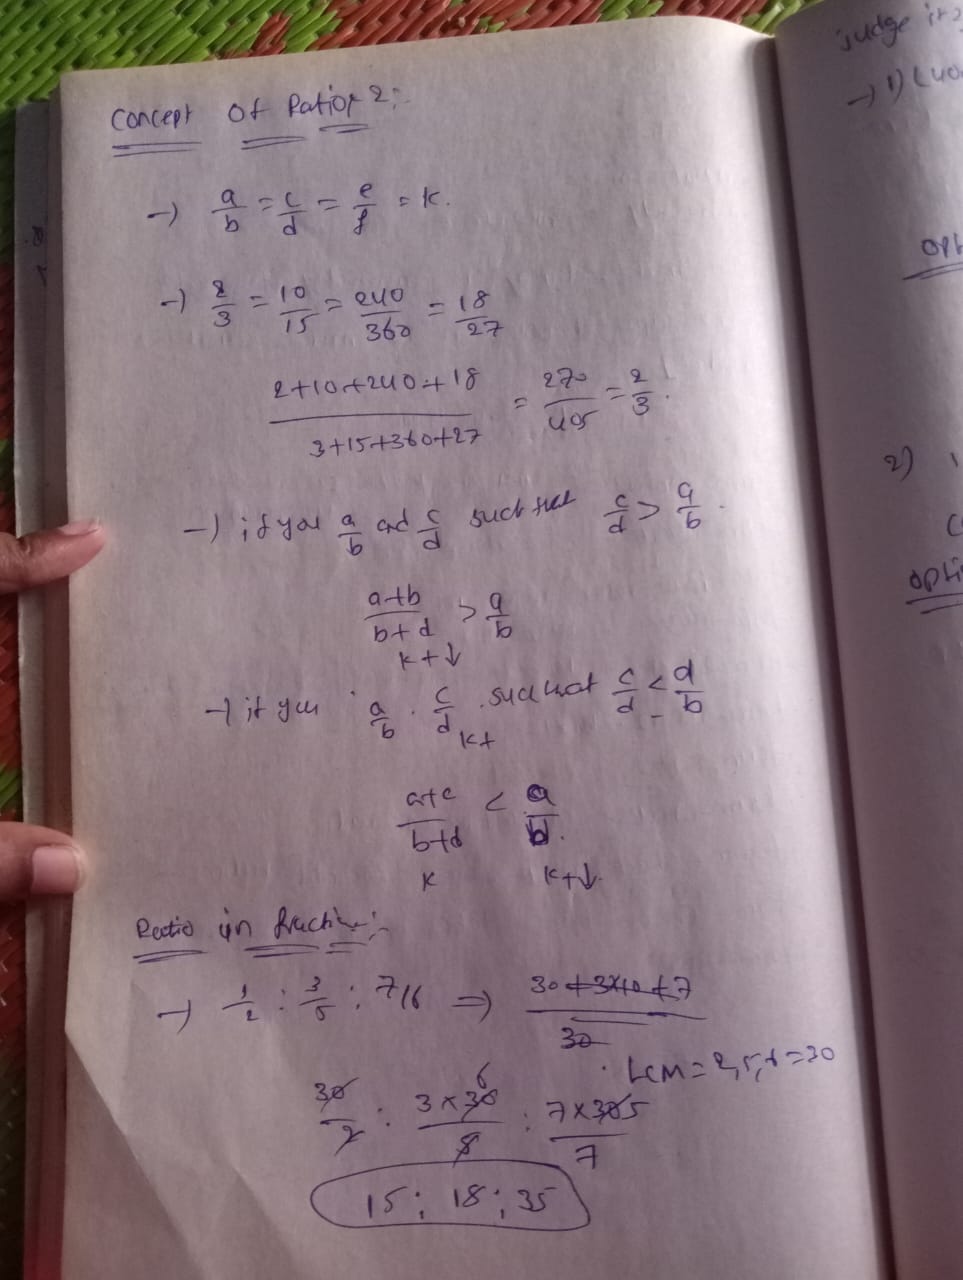 Concept Of Ratio 2:-
→ a/b = c/d = e/f = k.
→ 2/3 = 10/15 = 240/360 = 18/27
2+10+240+18 / 3+15+360+27 = 270/405 = 2/3.
→ if you a/b and c/d such that c/d > a/b.
a+b / b+d > a/b
k+↓
→ if you a/b . c/d . such that c/d < a/b
k+
a+c / b+d < a/b.
k k+↓.
Ratio in fraction:-
→ 1/2 : 3/5 : 7/6 ⇒ 30+3×10+7 / 30
. LCM = 2,5,6 = 30
30/2 : 3×30 6/5 : 7×30 5/7
15 : 18 : 35
judge it
→ 1)
opt
2)
opti